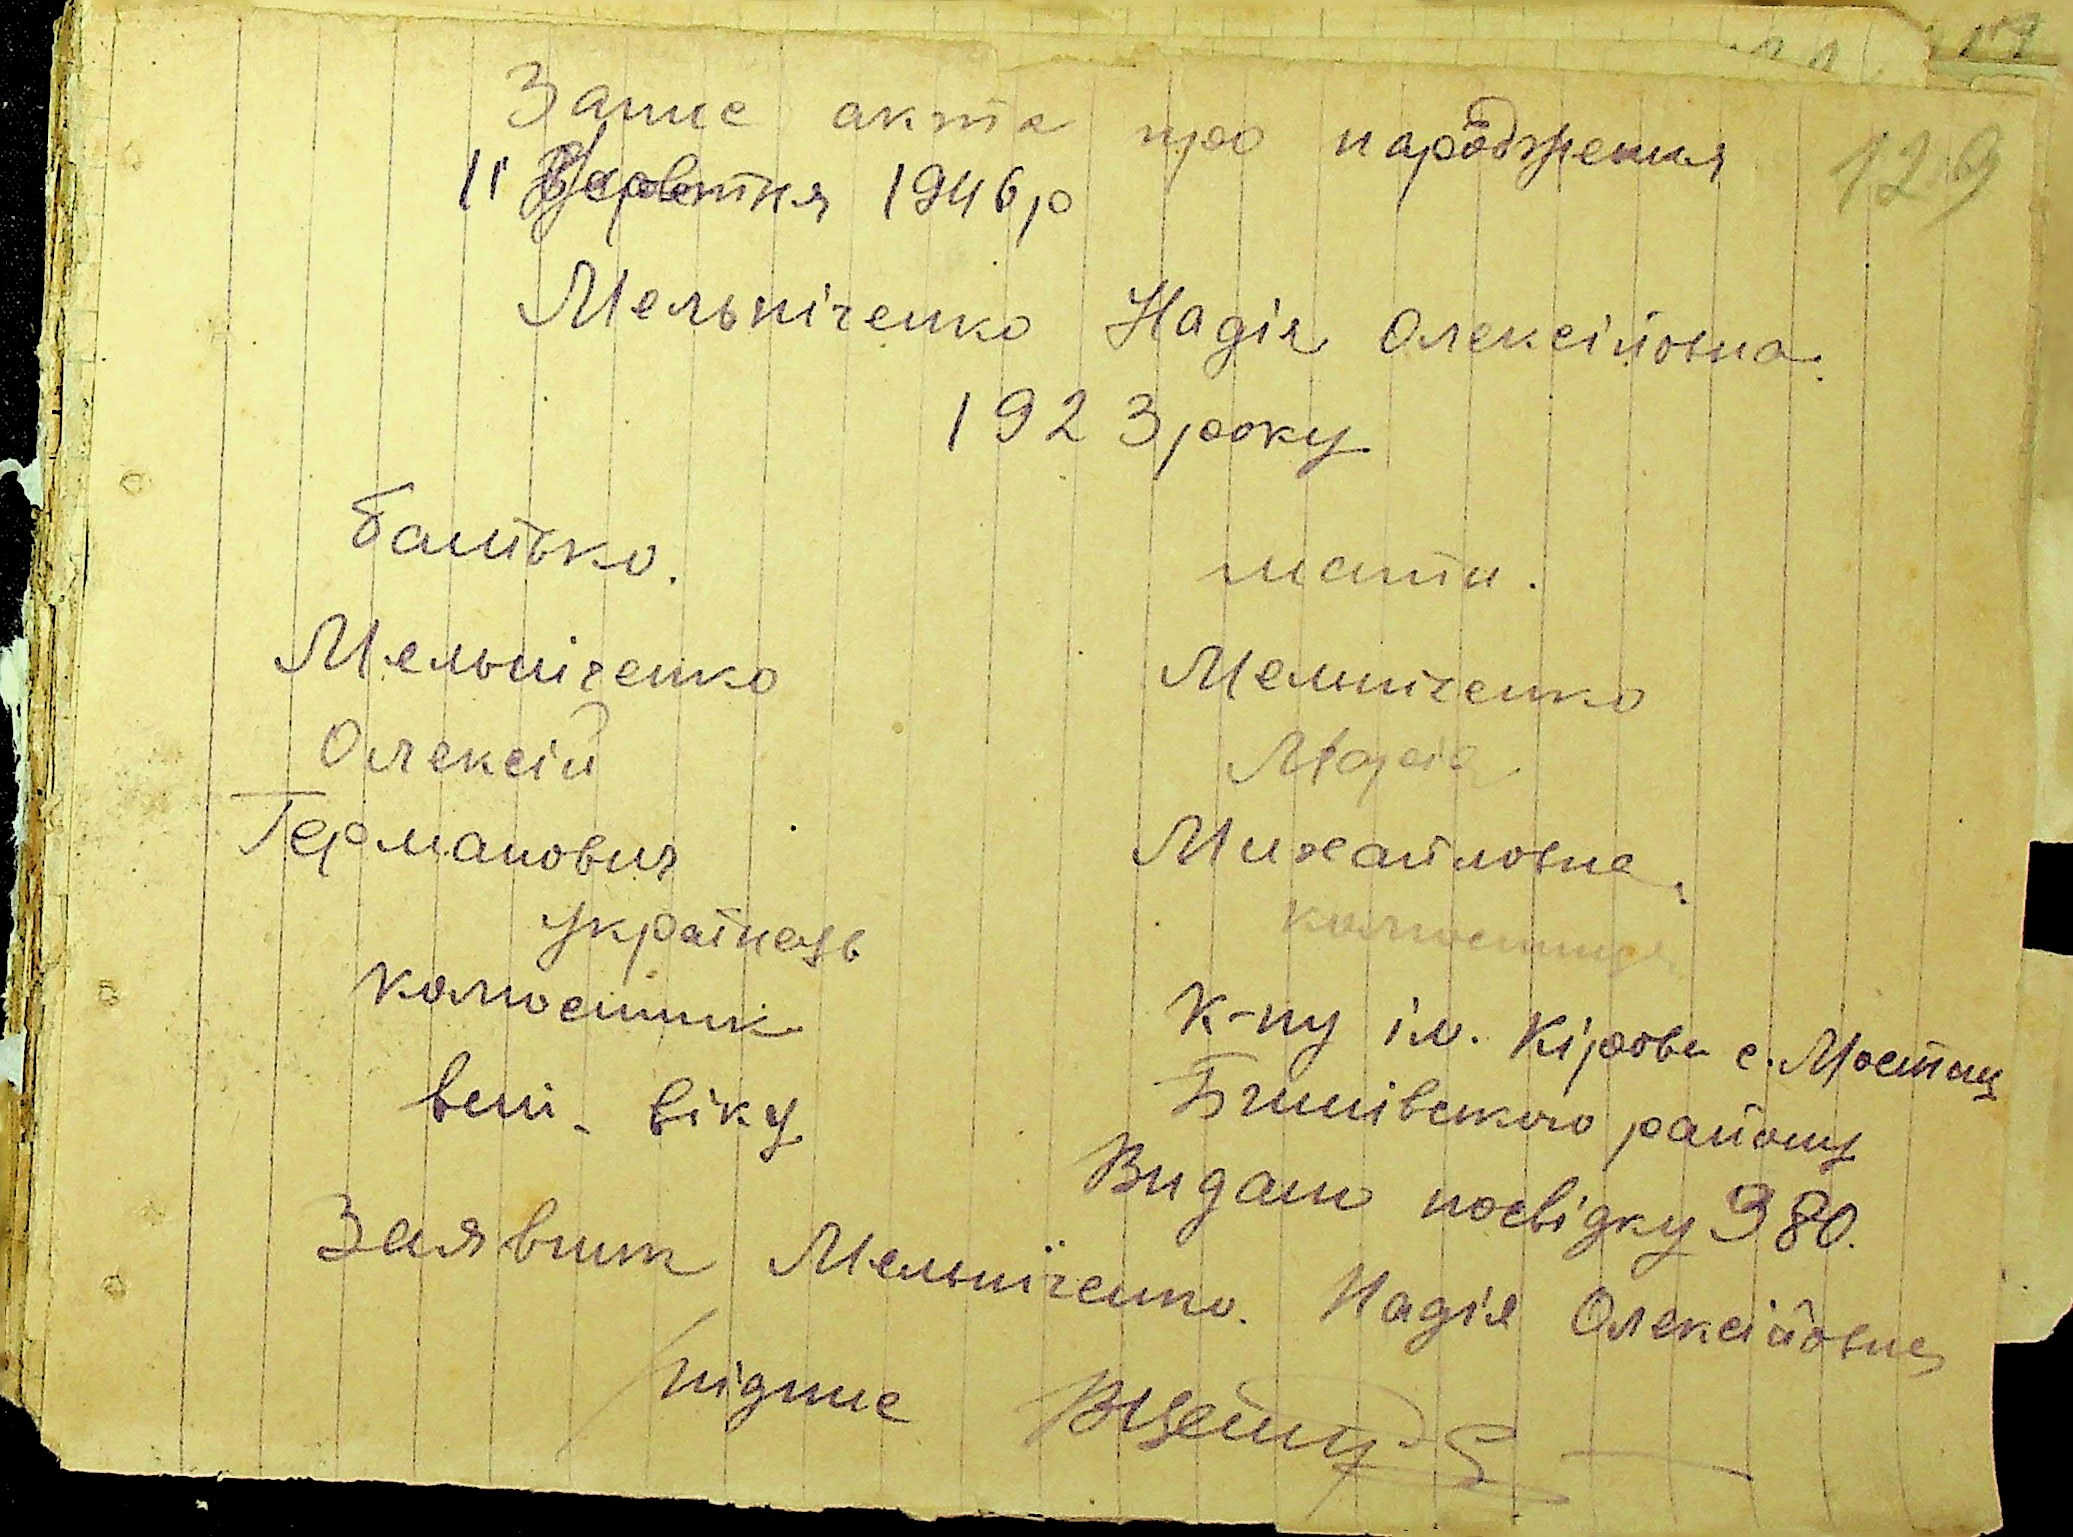 129
Запис акта про народження
11 Червтня 1946 р
Мельніченко Надія Олексійовна.
1923 року
батько.
мати.
Мельніченко
Мельніченко
Олексій
Марія
Германович
Михайловна.
українець
колгоспниця
колгоспник
к-пу ім. Кірова с. Мостищ
вст. віку
району
Видано посвідку 380.
Заявник Мельніченко. Надія Олексійовна
підпис